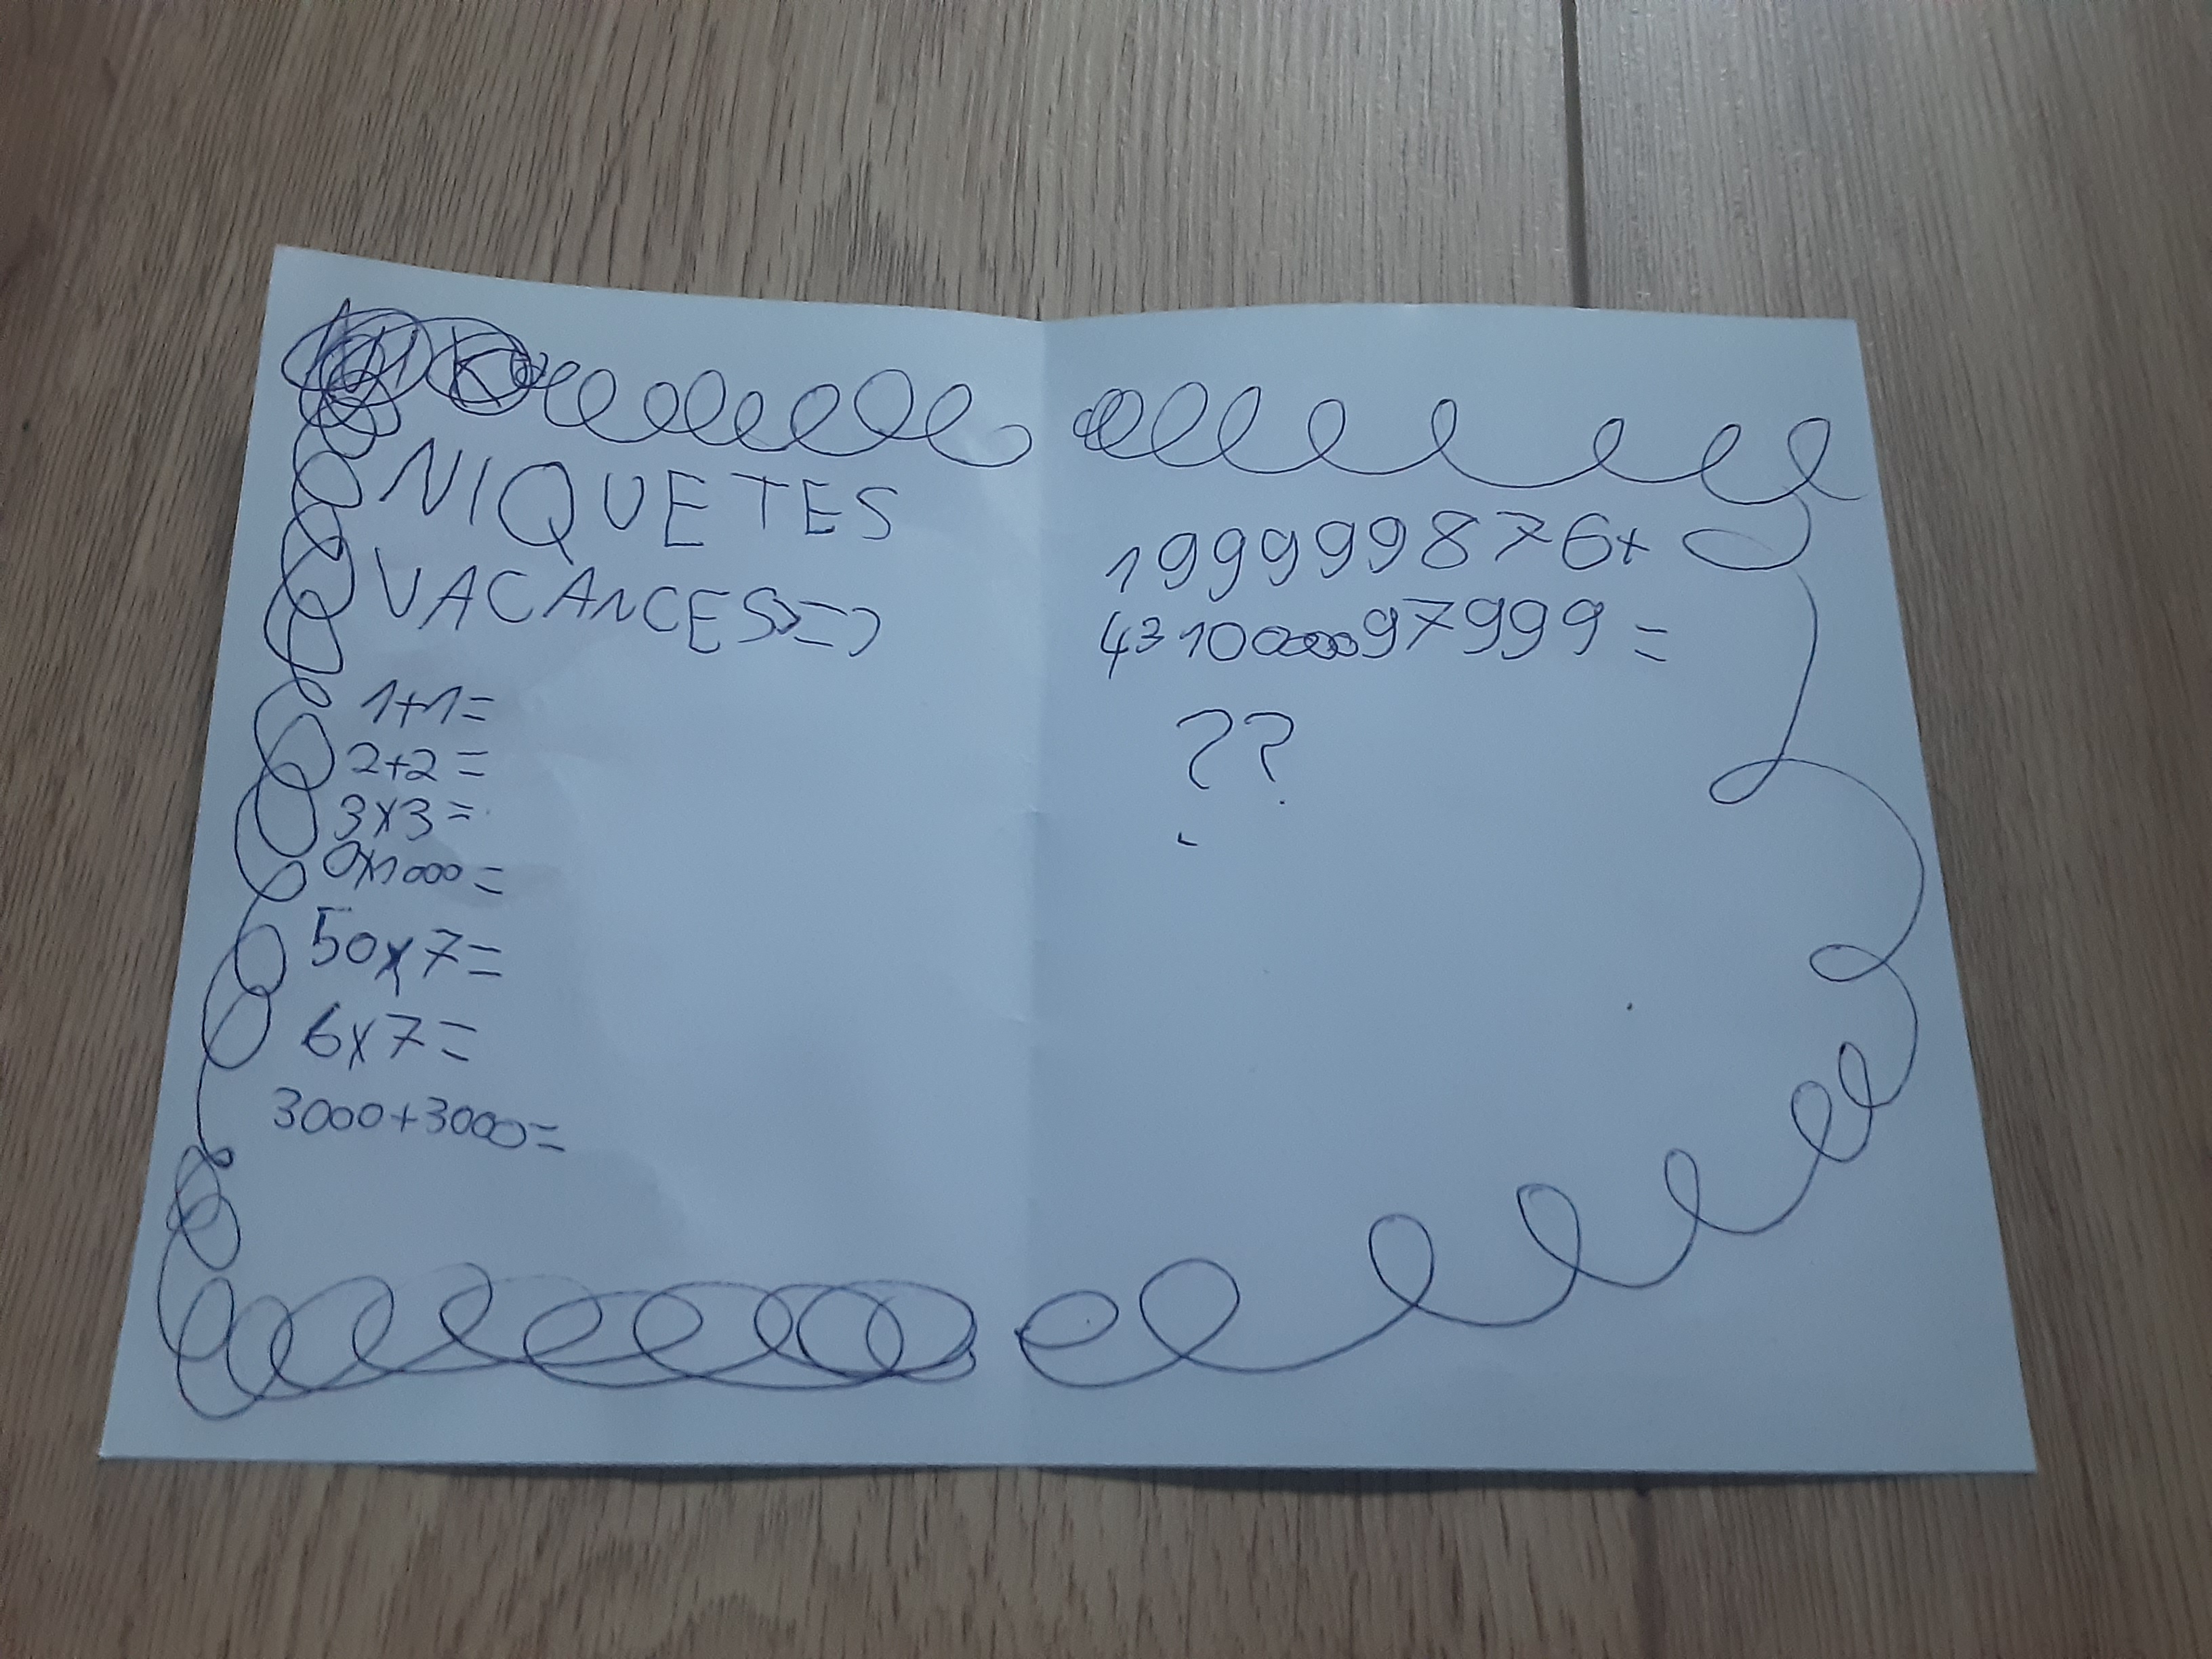 NIQUE TES
VACANCES=)
1+1=
2+2=
3x3=
0x1000=
50x7=
6x7=
3000+3000=
199999876+
97999=
??